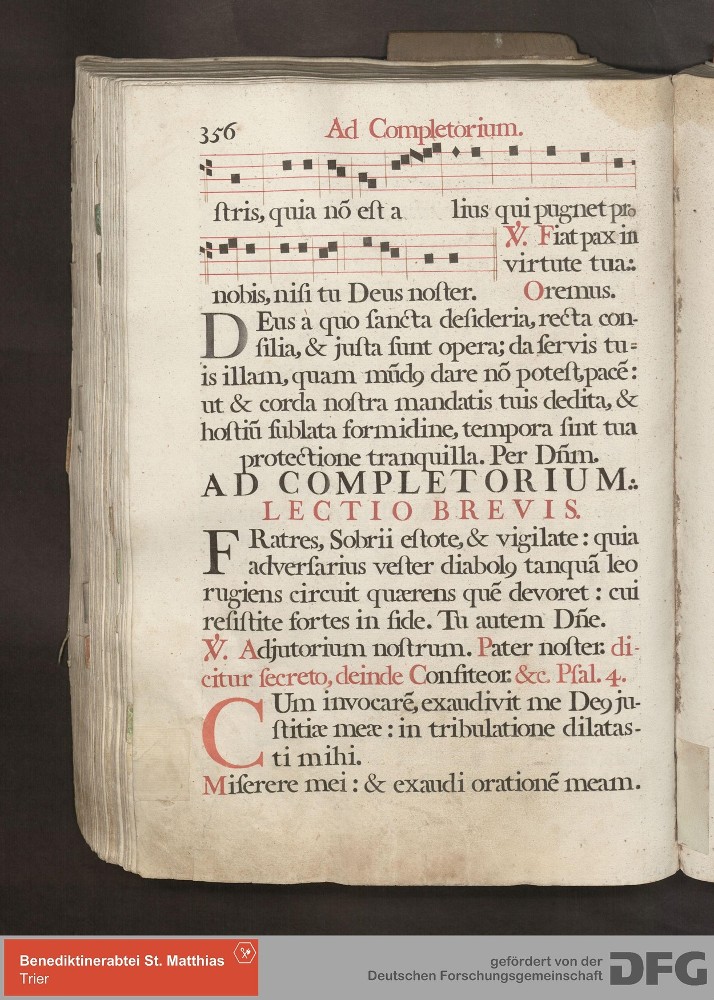 356 Ad Completorium.
ſtris, quia nõ eſt a lius qui pugnet pro
℣. Fiat pax in
virtute tua:.
nobis, niſi tu Deus noſter. Oremus.
DEus à quo ſancta deſideria, recta con-
ſilia, & juſta ſunt opera; da ſervis tu=
is illam, quam mũdꝯ dare nõ poteſt, pacẽ:
ut & corda noſtra mandatis tuis dedita, &
hoſtiũ ſublata formidine, tempora ſint tua
protectione tranquilla. Per Dñm.
AD COMPLETORIUM:.
LECTIO BREVIS.
FRatres, Sobrii eſtote, & vigilate: quia
adverſarius veſter diabolꝯ tanquã leo
rugiens circuit quærens quẽ devoret: cui
reſiſtite fortes in fide. Tu autem Dñe.
℣. Adjutorium noſtrum. Pater noſter: di-
citur ſecreto, deinde Confiteor. &c. Pſal. 4.
CUm invocarẽ, exaudivit me Deꝯ ju-
ſtitiæ meæ: in tribulatione dilatas-
ti mihi.
Miſerere mei: & exaudi orationẽ meam.
Benediktinerabtei St. Matthias
Trier
gefördert von der
Deutschen Forschungsgemeinschaft DFG